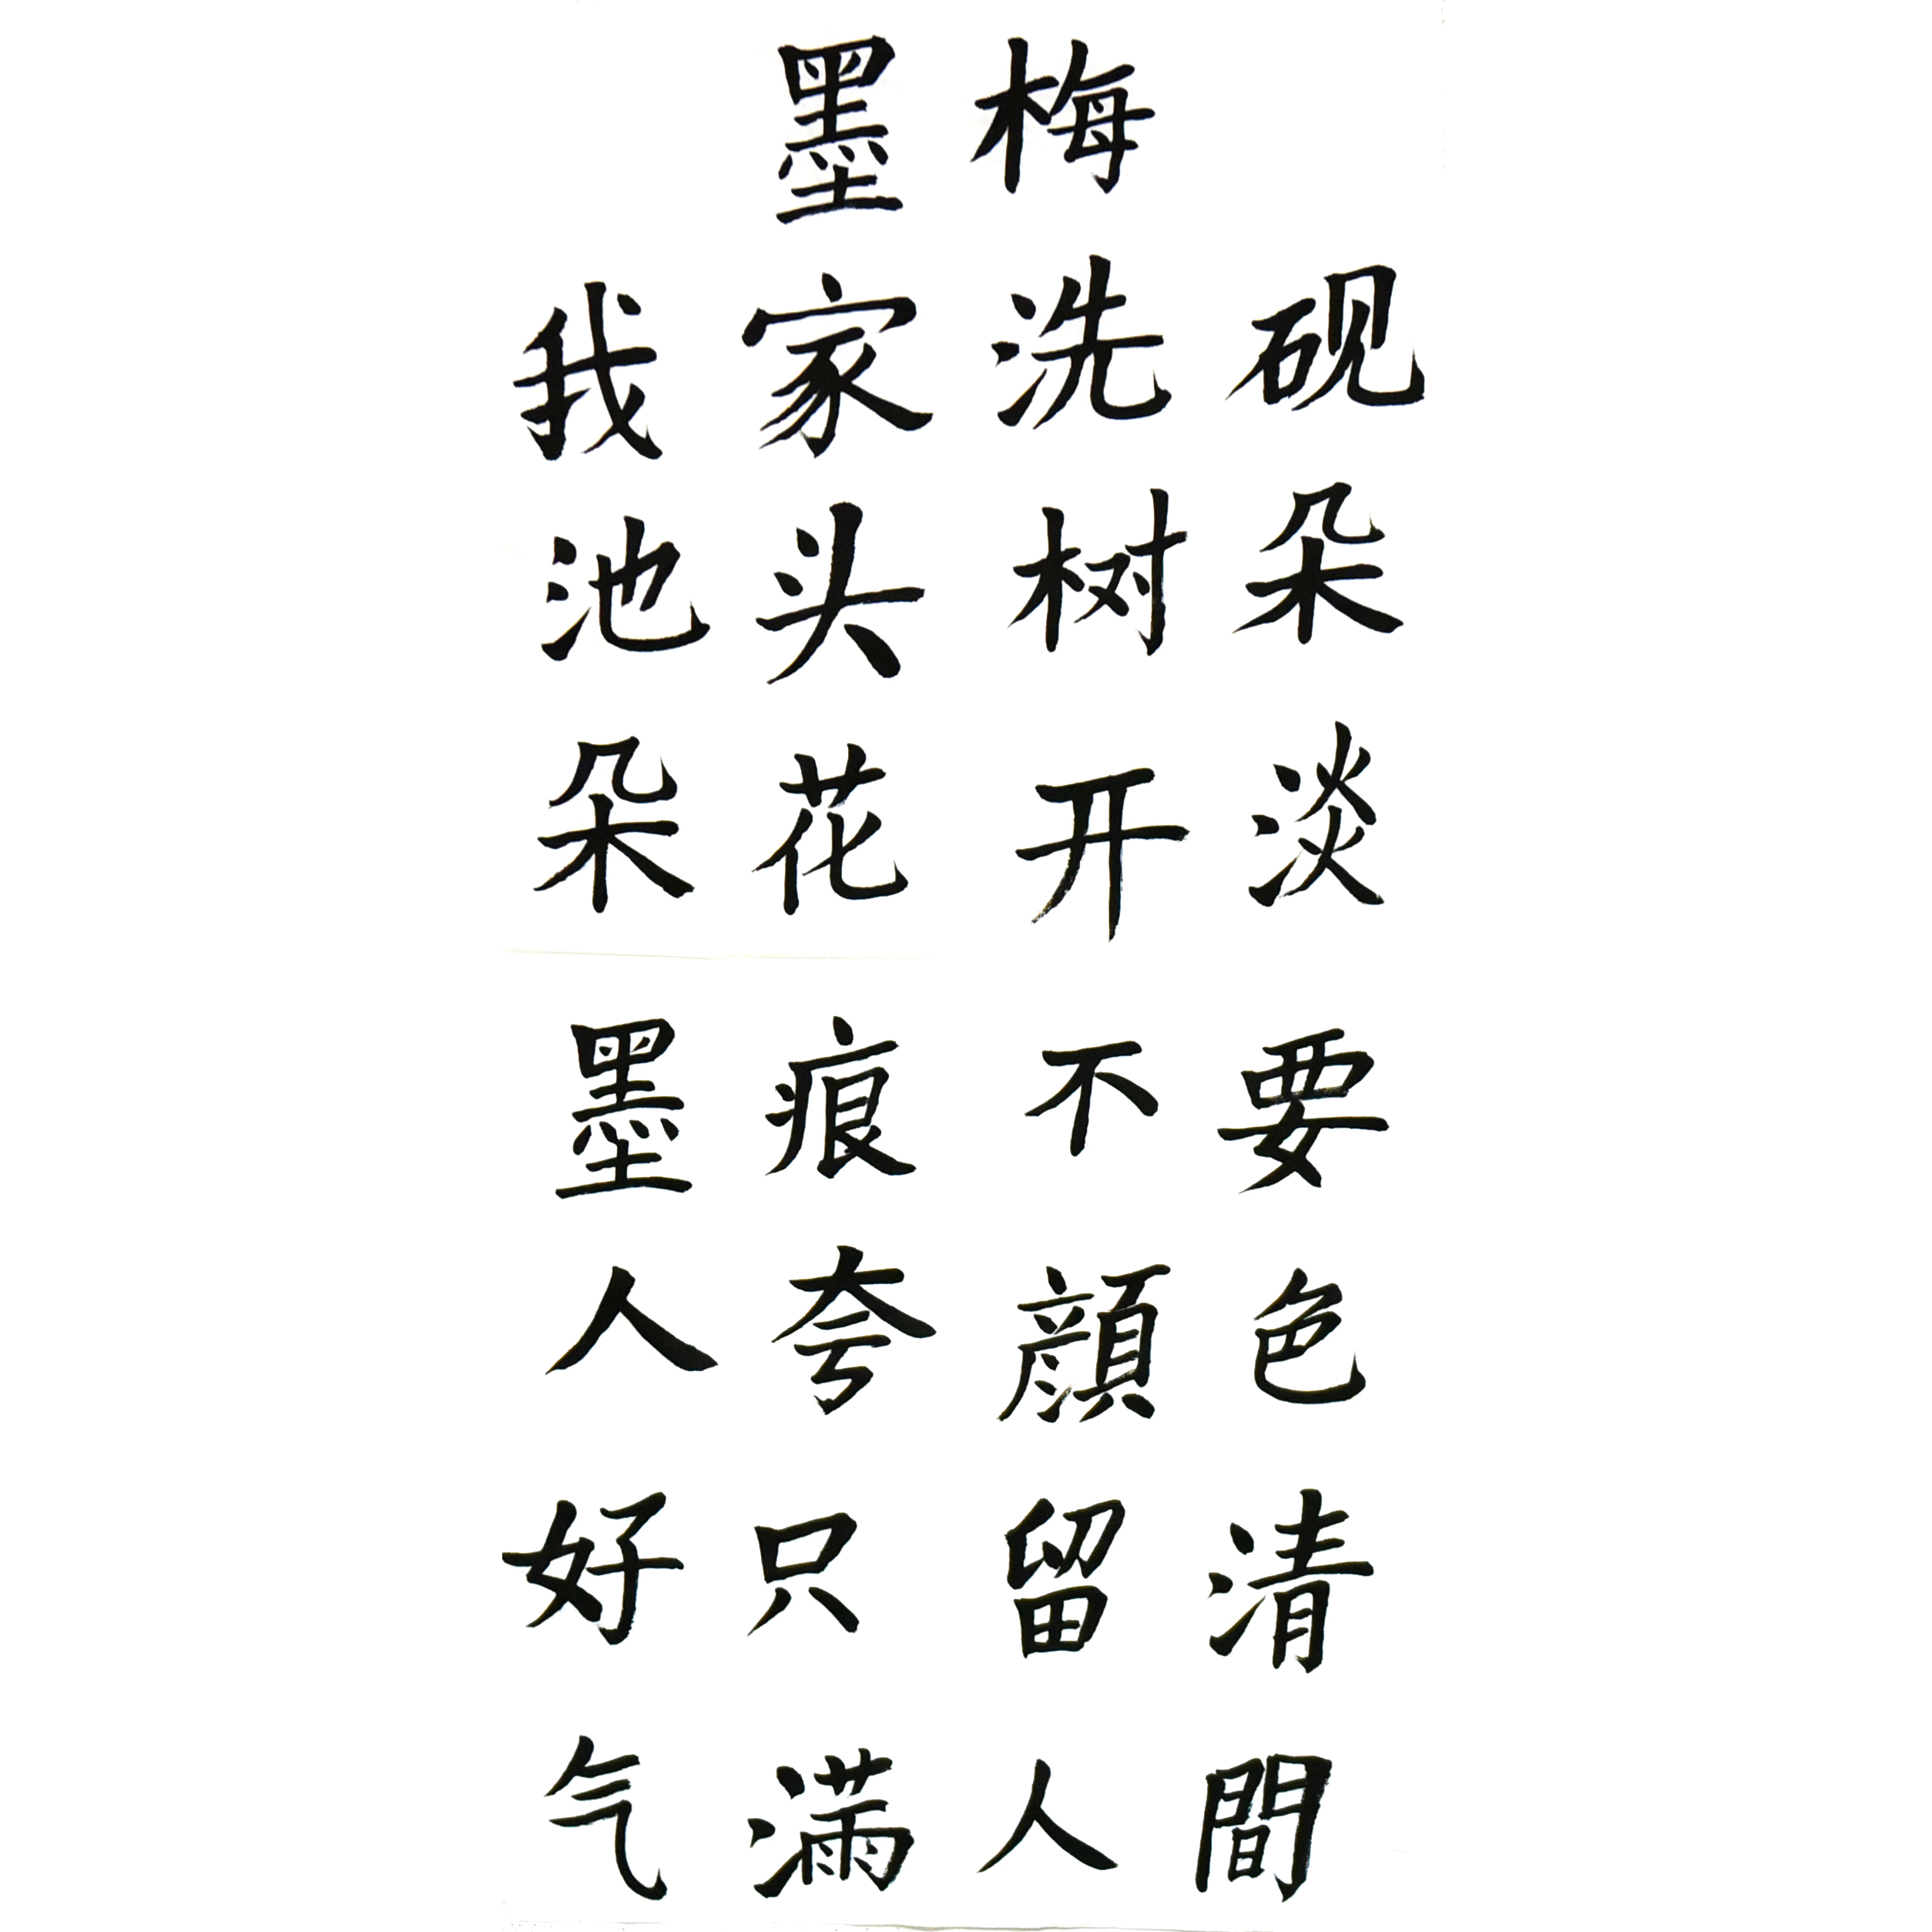 墨梅
我家洗砚
池头树朵
朵花开淡
墨痕不要
人夸顔色
好只留清
气满人間